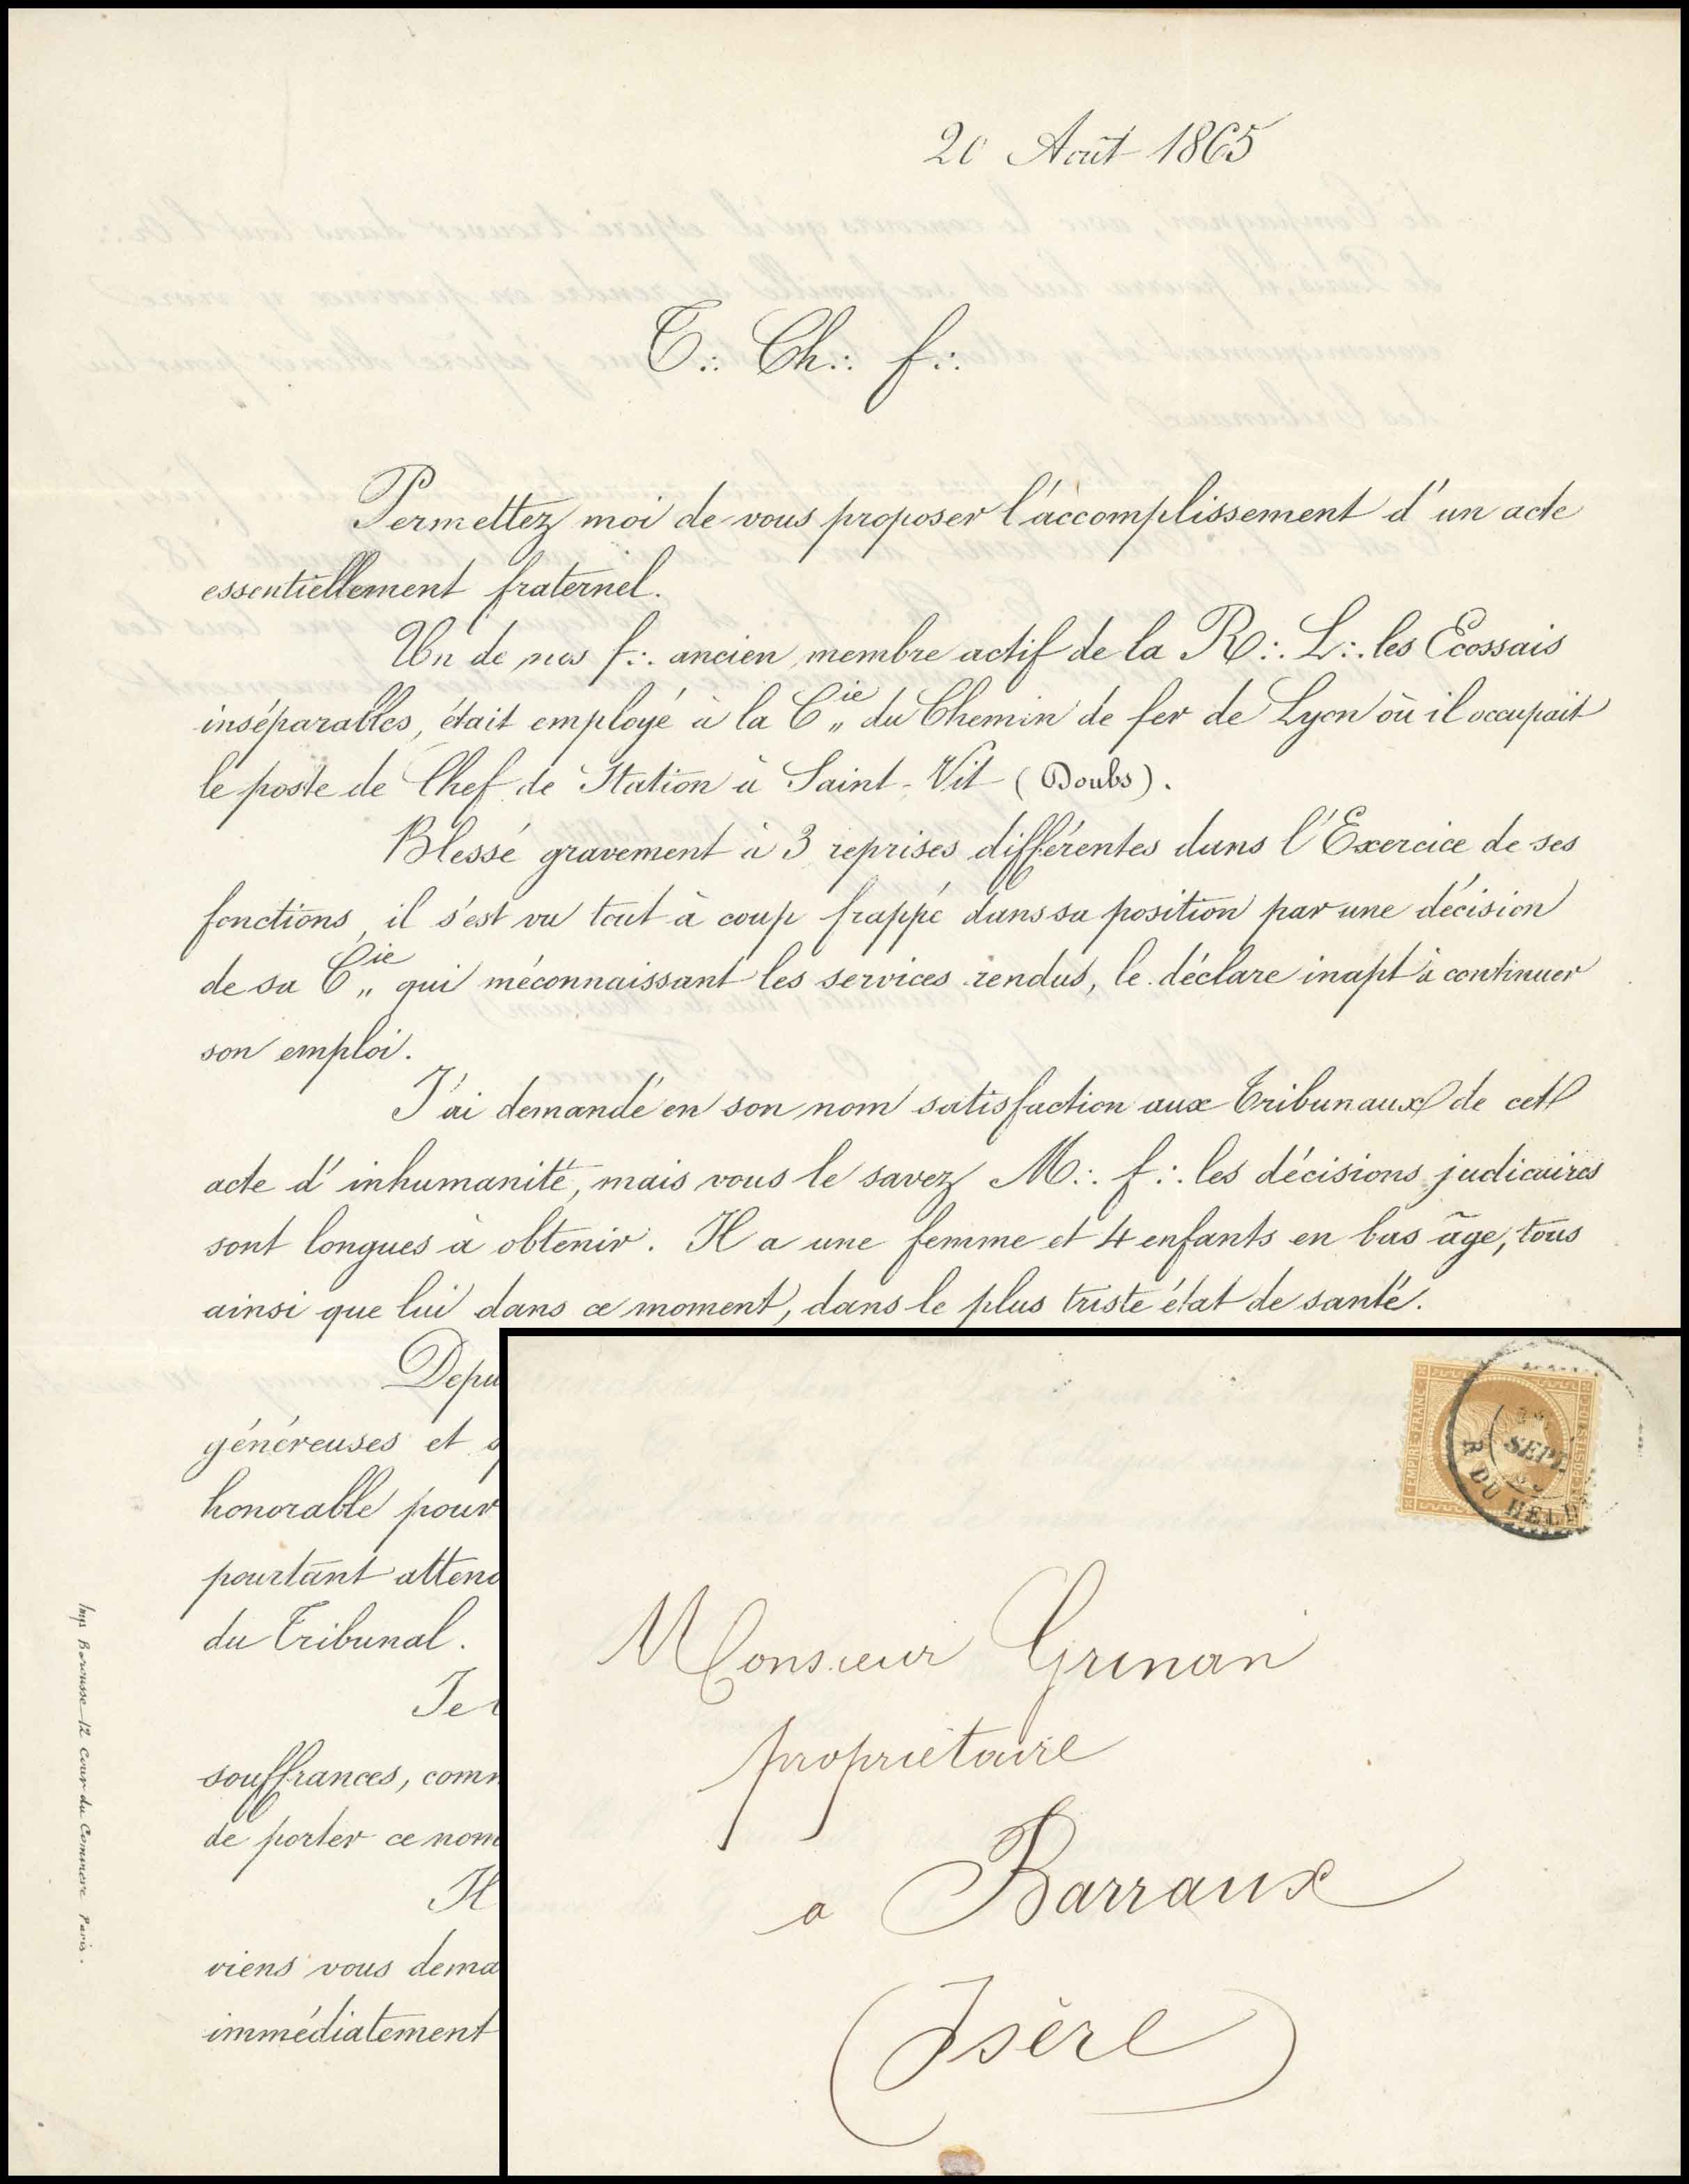 20 Août 1865
T∴ Ch∴ f∴
Permettez moi de vous proposer l'accomplissement d'un acte
essentiellement fraternel.
Un de nos f∴ ancien membre actif de la R∴ L∴ les Ecossais
inséparables, était employé à la Cie du Chemin de fer de Lyon où il occupait
le poste de Chef de Station à Saint-Vit (Doubs).
Blessé gravement à 3 reprises différentes dans l'Exercice de ses
fonctions, il s'est vu tout à coup frappé dans sa position par une décision
de sa Cie qui méconnaissant les services rendus, le déclare inapt à continuer
son emploi.
J'ai demandé en son nom satisfaction aux Tribunaux de cet
acte d'inhumanité, mais vous le savez M∴ f∴ les décisions judicaires
sont longues à obtenir. Il a une femme et 4 enfants en bas âge, tous
ainsi que lui dans ce moment, dans le plus triste état de santé.
Depu
généreuses et
honorable pour
pourtant attend
du Tribunal.
Je
souffrances, comm
de porter ce nom
Il
viens vous dema
immédiatement
Imp Barousse 12 Cour du Commerce Paris.
EMPIRE FRANC
POSTES
SEPT
R. DU HELD
Monsieur Grinan
propriétaire
a Barraux
(Isère)